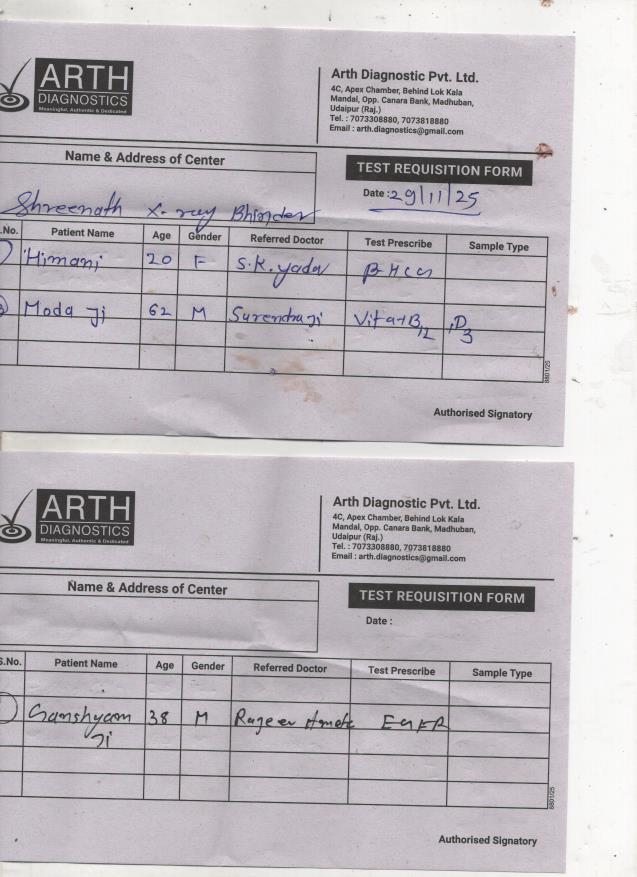 ARTH
DIAGNOSTICS
Meaningful, Authentic & Dedicated
Arth Diagnostic Pvt. Ltd.
4C, Apex Chamber, Behind Lok Kala
Mandal, Opp. Canara Bank, Madhuban,
Udaipur (Raj.)
Tel. : 7073308880, 7073818880
Email : arth.diagnostics@gmail.com
Name & Address of Center
TEST REQUISITION FORM
Date : 29/11/25
Shreenath X-ray Bhinder
.No. Patient Name Age Gender Referred Doctor Test Prescribe Sample Type
Himani 20 F S.K. yadav β HCG
Moda Ji 62 M Surendra Ji Vit a+B12, D3
8801/25
Authorised Signatory
ARTH
DIAGNOSTICS
Meaningful, Authentic & Dedicated
Arth Diagnostic Pvt. Ltd.
4C, Apex Chamber, Behind Lok Kala
Mandal, Opp. Canara Bank, Madhuban,
Udaipur (Raj.)
Tel. : 7073308880, 7073818880
Email : arth.diagnostics@gmail.com
Name & Address of Center
TEST REQUISITION FORM
Date :
S.No. Patient Name Age Gender Referred Doctor Test Prescribe Sample Type
Ganshyam 38 M Rajeev EGFR
Ji
8801/25
Authorised Signatory